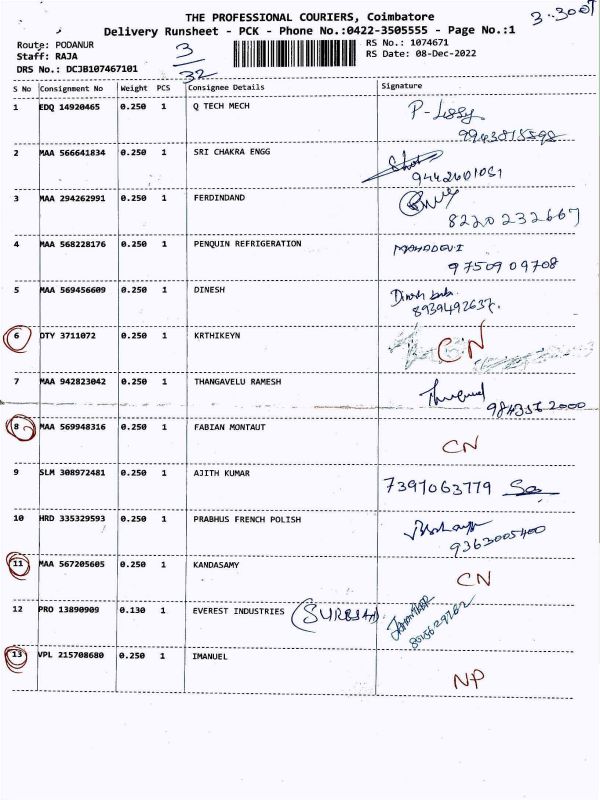 THE PROFESSIONAL COURIERS, Coimbatore
Delivery Runsheet - PCK - Phone No.:0422-3505555 - Page No.:1
Route: PODANUR
Staff: RAJA
DRS No.: DCJB107467101
3
32
RS No.: 1074671
RS Date: 08-Dec-2022
S No Consignment No Weight PCS Consignee Details Signature
1 EDQ 14920465 0.250 1 Q TECH MECH P-Lissy
9943815598
2 MAA 566641834 0.250 1 SRI CHAKRA ENGG
9442601051
3 MAA 294262991 0.250 1 FERDINDAND
8220232667
4 MAA 568228176 0.250 1 PENQUIN REFRIGERATION MAHADEV.I
9750909708
5 MAA 569456609 0.250 1 DINESH Dinesh
8939492637.
6 DTY 3711072 0.250 1 KRTHIKEYN CN
7 MAA 942823042 0.250 1 THANGAVELU RAMESH
9843562000
8 MAA 569948316 0.250 1 FABIAN MONTAUT CN
9 SLM 308972481 0.250 1 AJITH KUMAR 7397063779
10 HRD 335329593 0.250 1 PRABHUS FRENCH POLISH
9363005400
11 MAA 567205605 0.250 1 KANDASAMY CN
12 PRO 13890909 0.130 1 EVEREST INDUSTRIES
13 VPL 215708680 0.250 1 IMANUEL NP